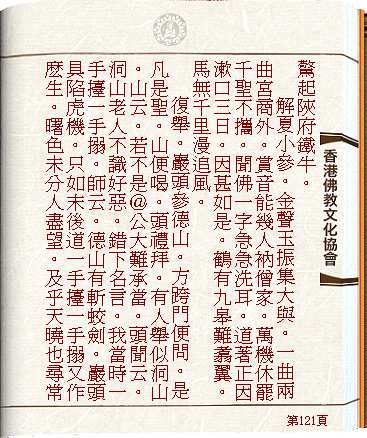 驚起陝府鐵牛。
解夏小參。金聲玉振集大與。一曲兩
曲宮商外。賞音能幾人衲僧家。萬機休罷
千聖不攜。聞佛一字急急洗耳。道著正因
漱口三日。因甚如是。鶴有九皋難翥翼。
馬無千里漫追風。
復舉。巖頭參德山。方跨門便問。是
凡是聖。山便喝。頭禮拜。有人舉似洞山
。山云。若不是@公大難承當。頭聞云。
洞山老人不識好惡。錯下名言。我當時一
手擡一手搦。師云。德山有斬蛟劍。巖頭
具陷虎機。只如末後道一手擡一手搦又作
麼生。曙色未分人盡望。及乎天曉也尋常
香港佛教文化協會
第121頁